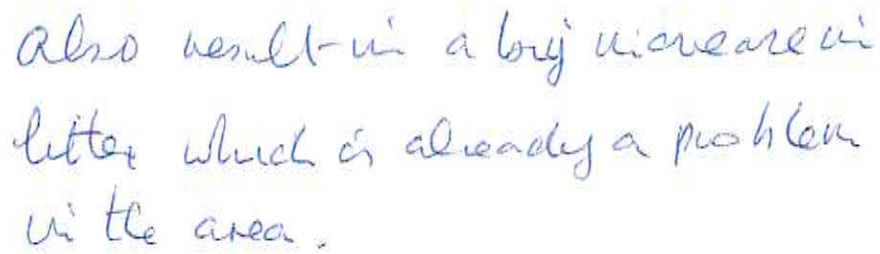 also result in a big increase in
litter which is already a problem
in the area.